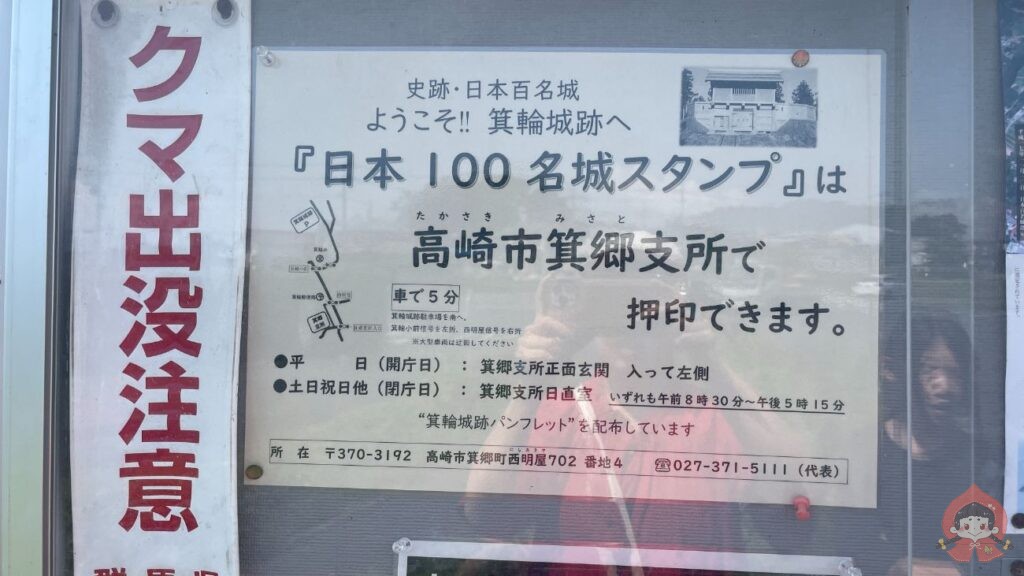 クマ出没注意
史跡・日本百名城
ようこそ!! 箕輪城跡へ
『日本100名城スタンプ』は
たかさき みさと
高崎市箕郷支所で
押印できます。
車で5分
箕輪城跡駐車場を南へ。
箕輪小前信号を左折、四明屋信号を右折
※大型車両は迂回してください
●平　　日（開庁日）：箕郷支所正面玄関 入って左側
●土日祝日他（閉庁日）：箕郷支所日直室 いずれも午前8時30分～午後5時15分
“箕輪城跡パンフレット”を配布しています
所 在 〒370-3192 高崎市箕郷町西明屋702番地4 ☎027-371-5111（代表）